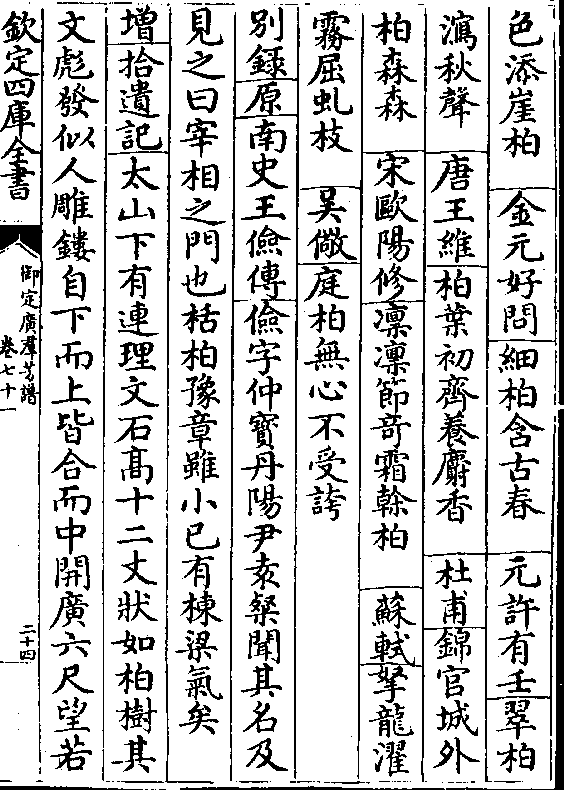 色添崖柏　金元好問細柏含古春　元許有壬翠柏
瀉秋聲　唐王維柏葉初齊養麝香　杜甫錦官城外
柏森森　宋歐陽修凛凛節竒霜榦柏　蘇軾拏龍濯
霧屈虬枝　吴儆庭柏無心不受誇
别錄原南史王儉傳儉字仲寳丹陽尹袁粲聞其名及
見之曰宰相之門也栝柏豫章雖小已有棟梁氣矣
增拾遺記太山下有連理文石髙十二丈狀如柏樹其
文彪發似人雕鏤自下而上皆合而中開廣六尺望若
欽定四庫全書
御定廣羣芳譜
卷七十一
二十四